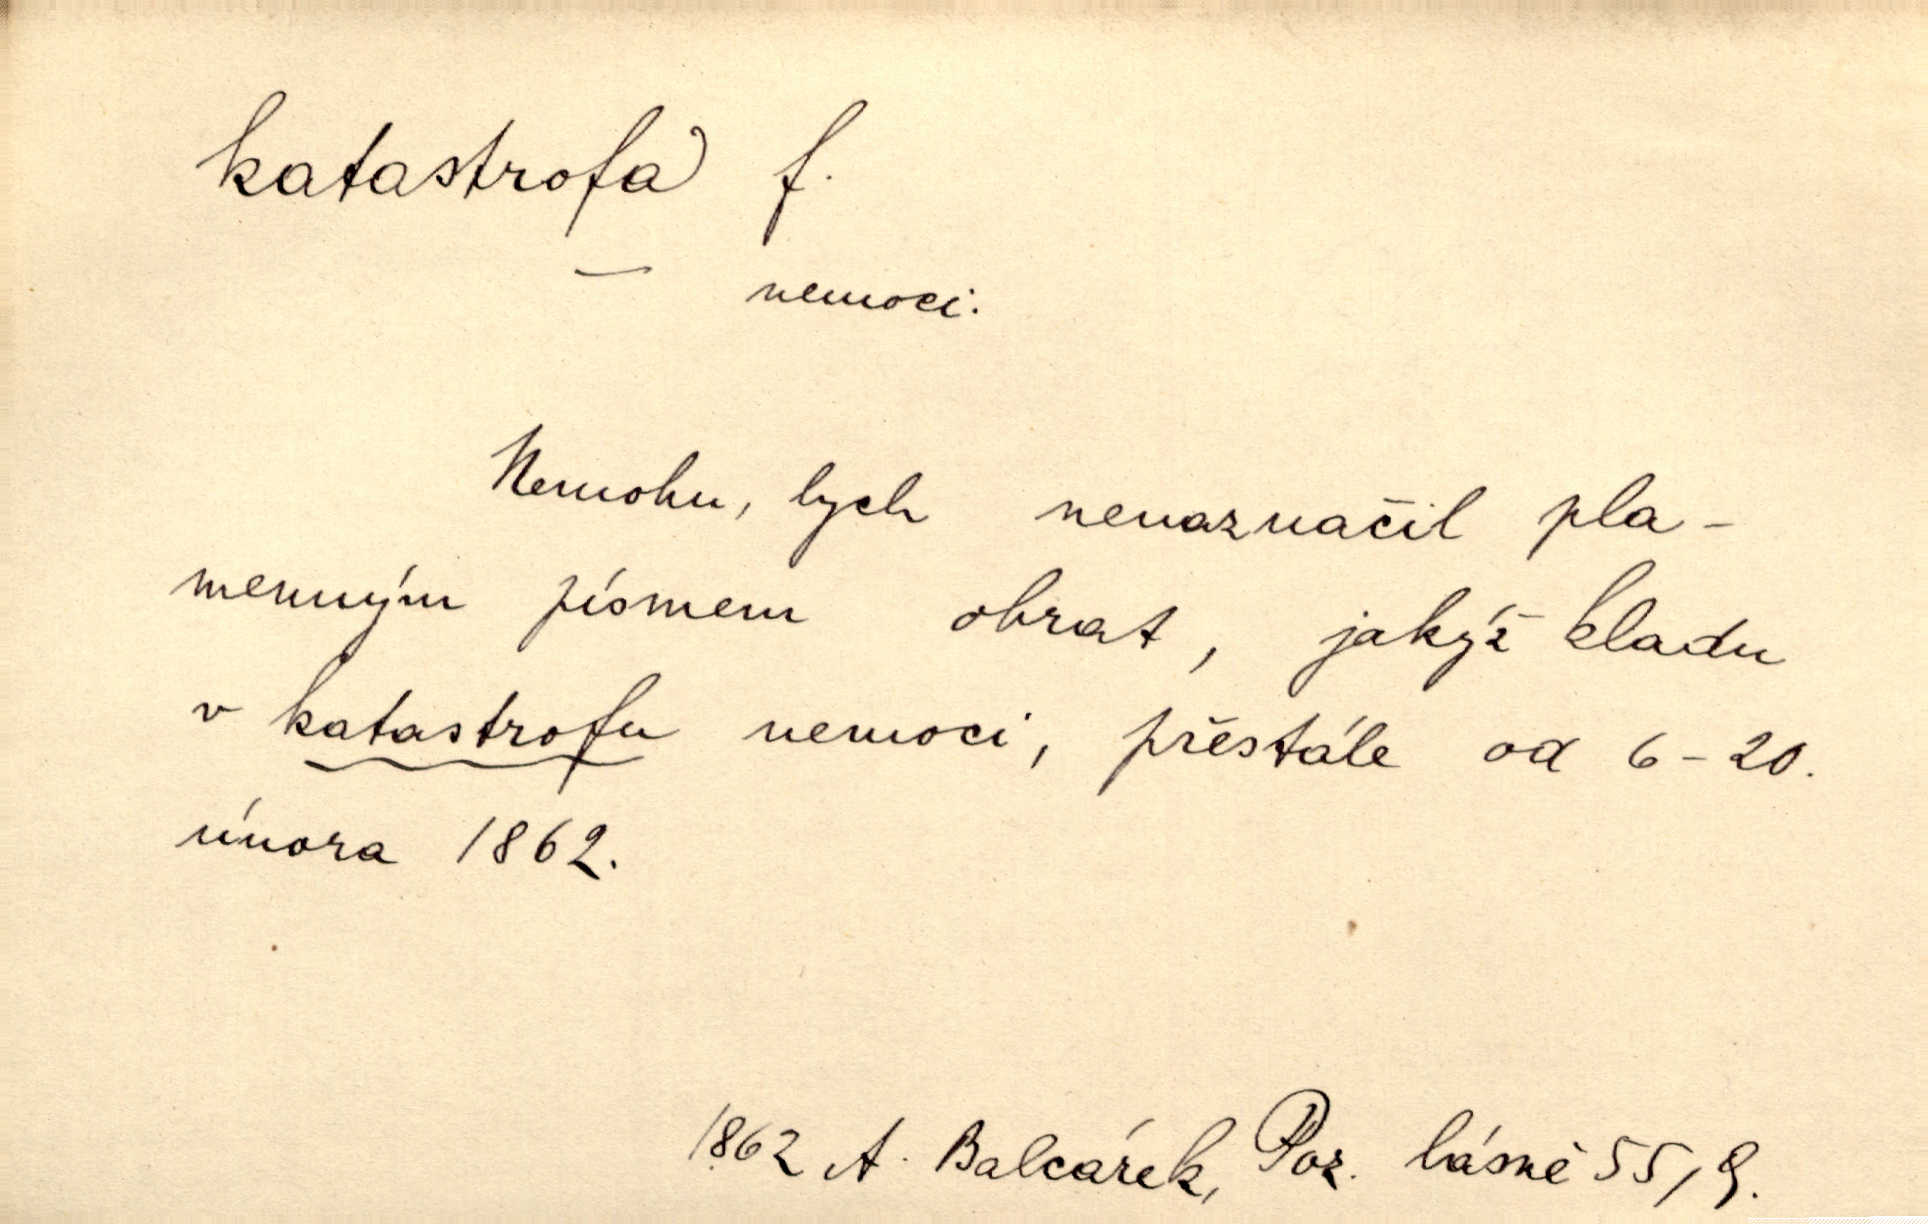 katastrofa f.
— nemoci.
Nemohu, bych nenaznačil pla-
menným písmem obrat, jakýž kladu
v katastrofu nemoci, přestálé od 6-20.
února 1862.
1862 A. Balcárek, Poz. básně 55, 9.